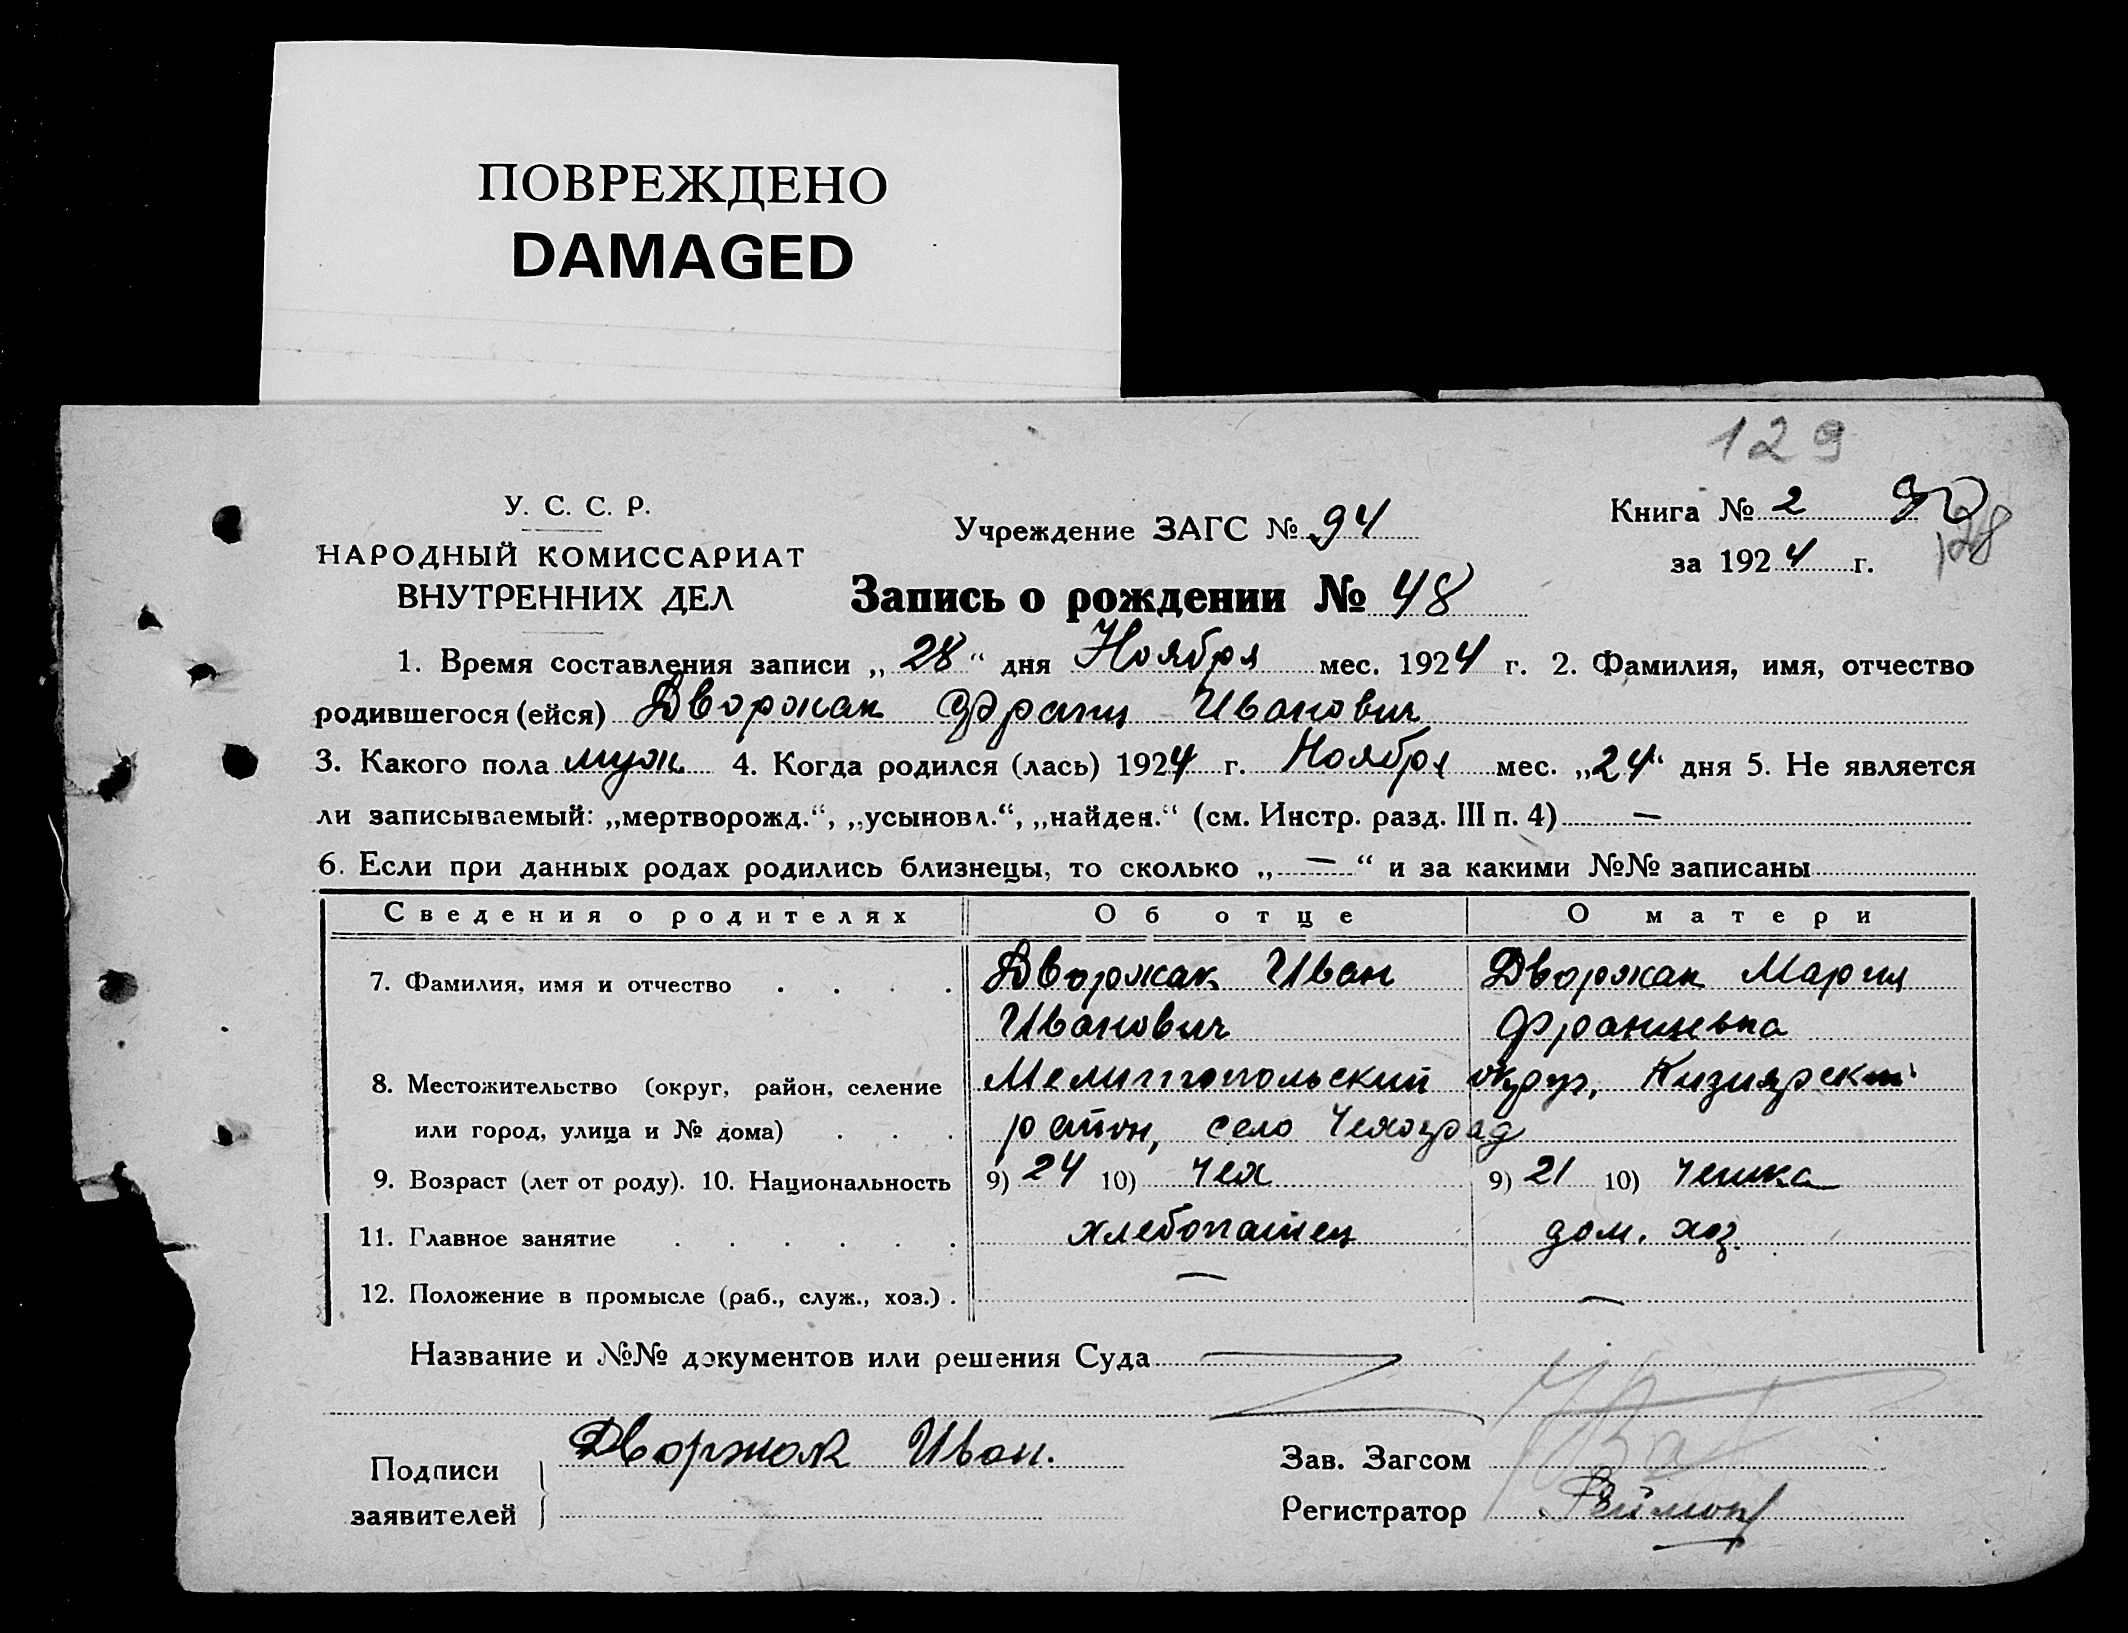 ПОВРЕЖДЕНО
DAMAGED
129
У. С. С. Р.
НАРОДНЫЙ КОМИССАРИАТ
ВНУТРЕННИХ ДЕЛ
Учреждение ЗАГС № 94
Книга № 2
128
за 1924 г.
Запись о рождении № 48
1. Время составления записи „28“ дня Ноября мес. 1924 г. 2. Фамилия, имя, отчество
родившегося (ейся) Дворжак Франц Иванович
3. Какого пола муж 4. Когда родился (лась) 1924 г. Ноября мес. „24“ дня 5. Не является
ли записываемый: „мертворожд.“, „усыновл.“, „найден.“ (см. Инстр. разд. III п. 4) —
6. Если при данных родах родились близнецы, то сколько „—“ и за какими №№ записаны
Сведения о родителях Об отце О матери
7. Фамилия, имя и отчество . . . . Дворжак Иван Дворжак Мария
Иванович Францевна
8. Местожительство (округ, район, селение Мелитопольский округ, Кизиярский
или город, улица и № дома) . . . район, село Чехоград
9. Возраст (лет от роду). 10. Национальность 9) 24 10) Чех 9) 21 10) Чешка
11. Главное занятие . . . . . . хлебопашец дом. хоз.
12. Положение в промысле (раб., служ., хоз.) . — —
Название и №№ документов или решения Суда
Подписи заявителей Дворжак Иван.
Зав. Загсом
Регистратор